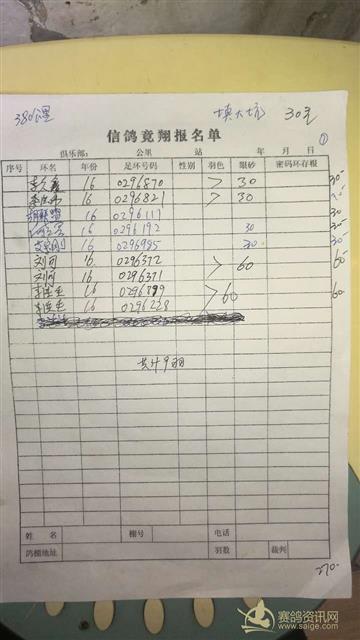 380公里 填大坑 30元
信鸽竞翔报名单 ①
俱乐部: 公里 站 年 月 日
序号 环名 年份 足环号码 性别 羽色 眼砂 密码环存根
16 0296870 > 30 30
16 0296821 > 30
16 0296117 30
16 0296192 30 30
16 0296985 30 30
刘可 16 0296372 > 60 60
刘可 16 0296371
16 0296799 > 60 60
16 0296228
共计9羽
姓名 棚号 电话
鸽棚地址 羽数 裁判
270
赛鸽资讯网
www.saige.com